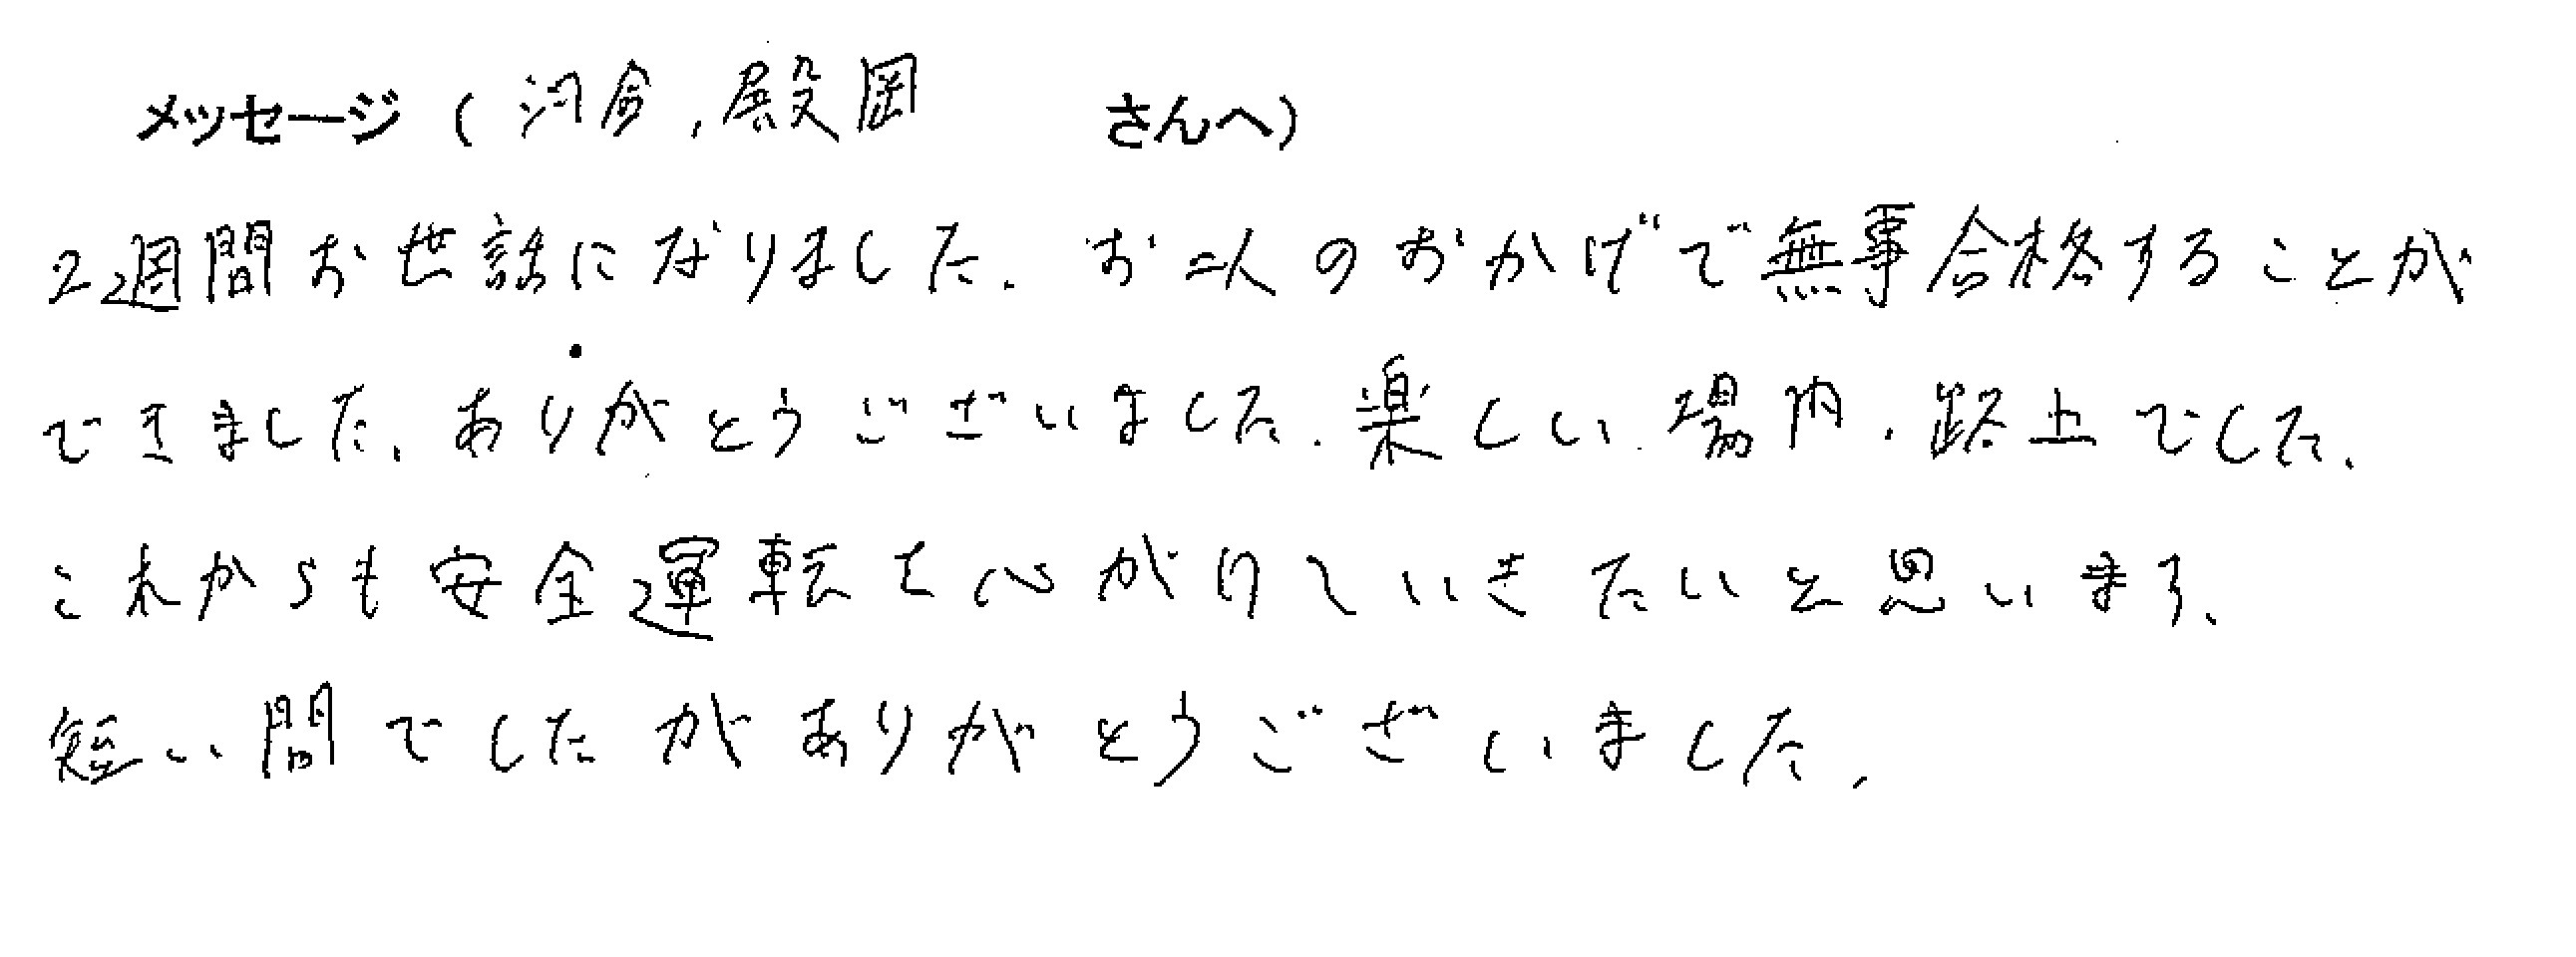 メッセージ（河合、殿岡 さんへ）
2週間お世話になりました。お二人のおかげで無事合格することが
できました。ありがとうございました。楽しい場内、路上でした。
これからも安全運転を心がけていきたいと思います。
短い間でしたがありがとうございました。